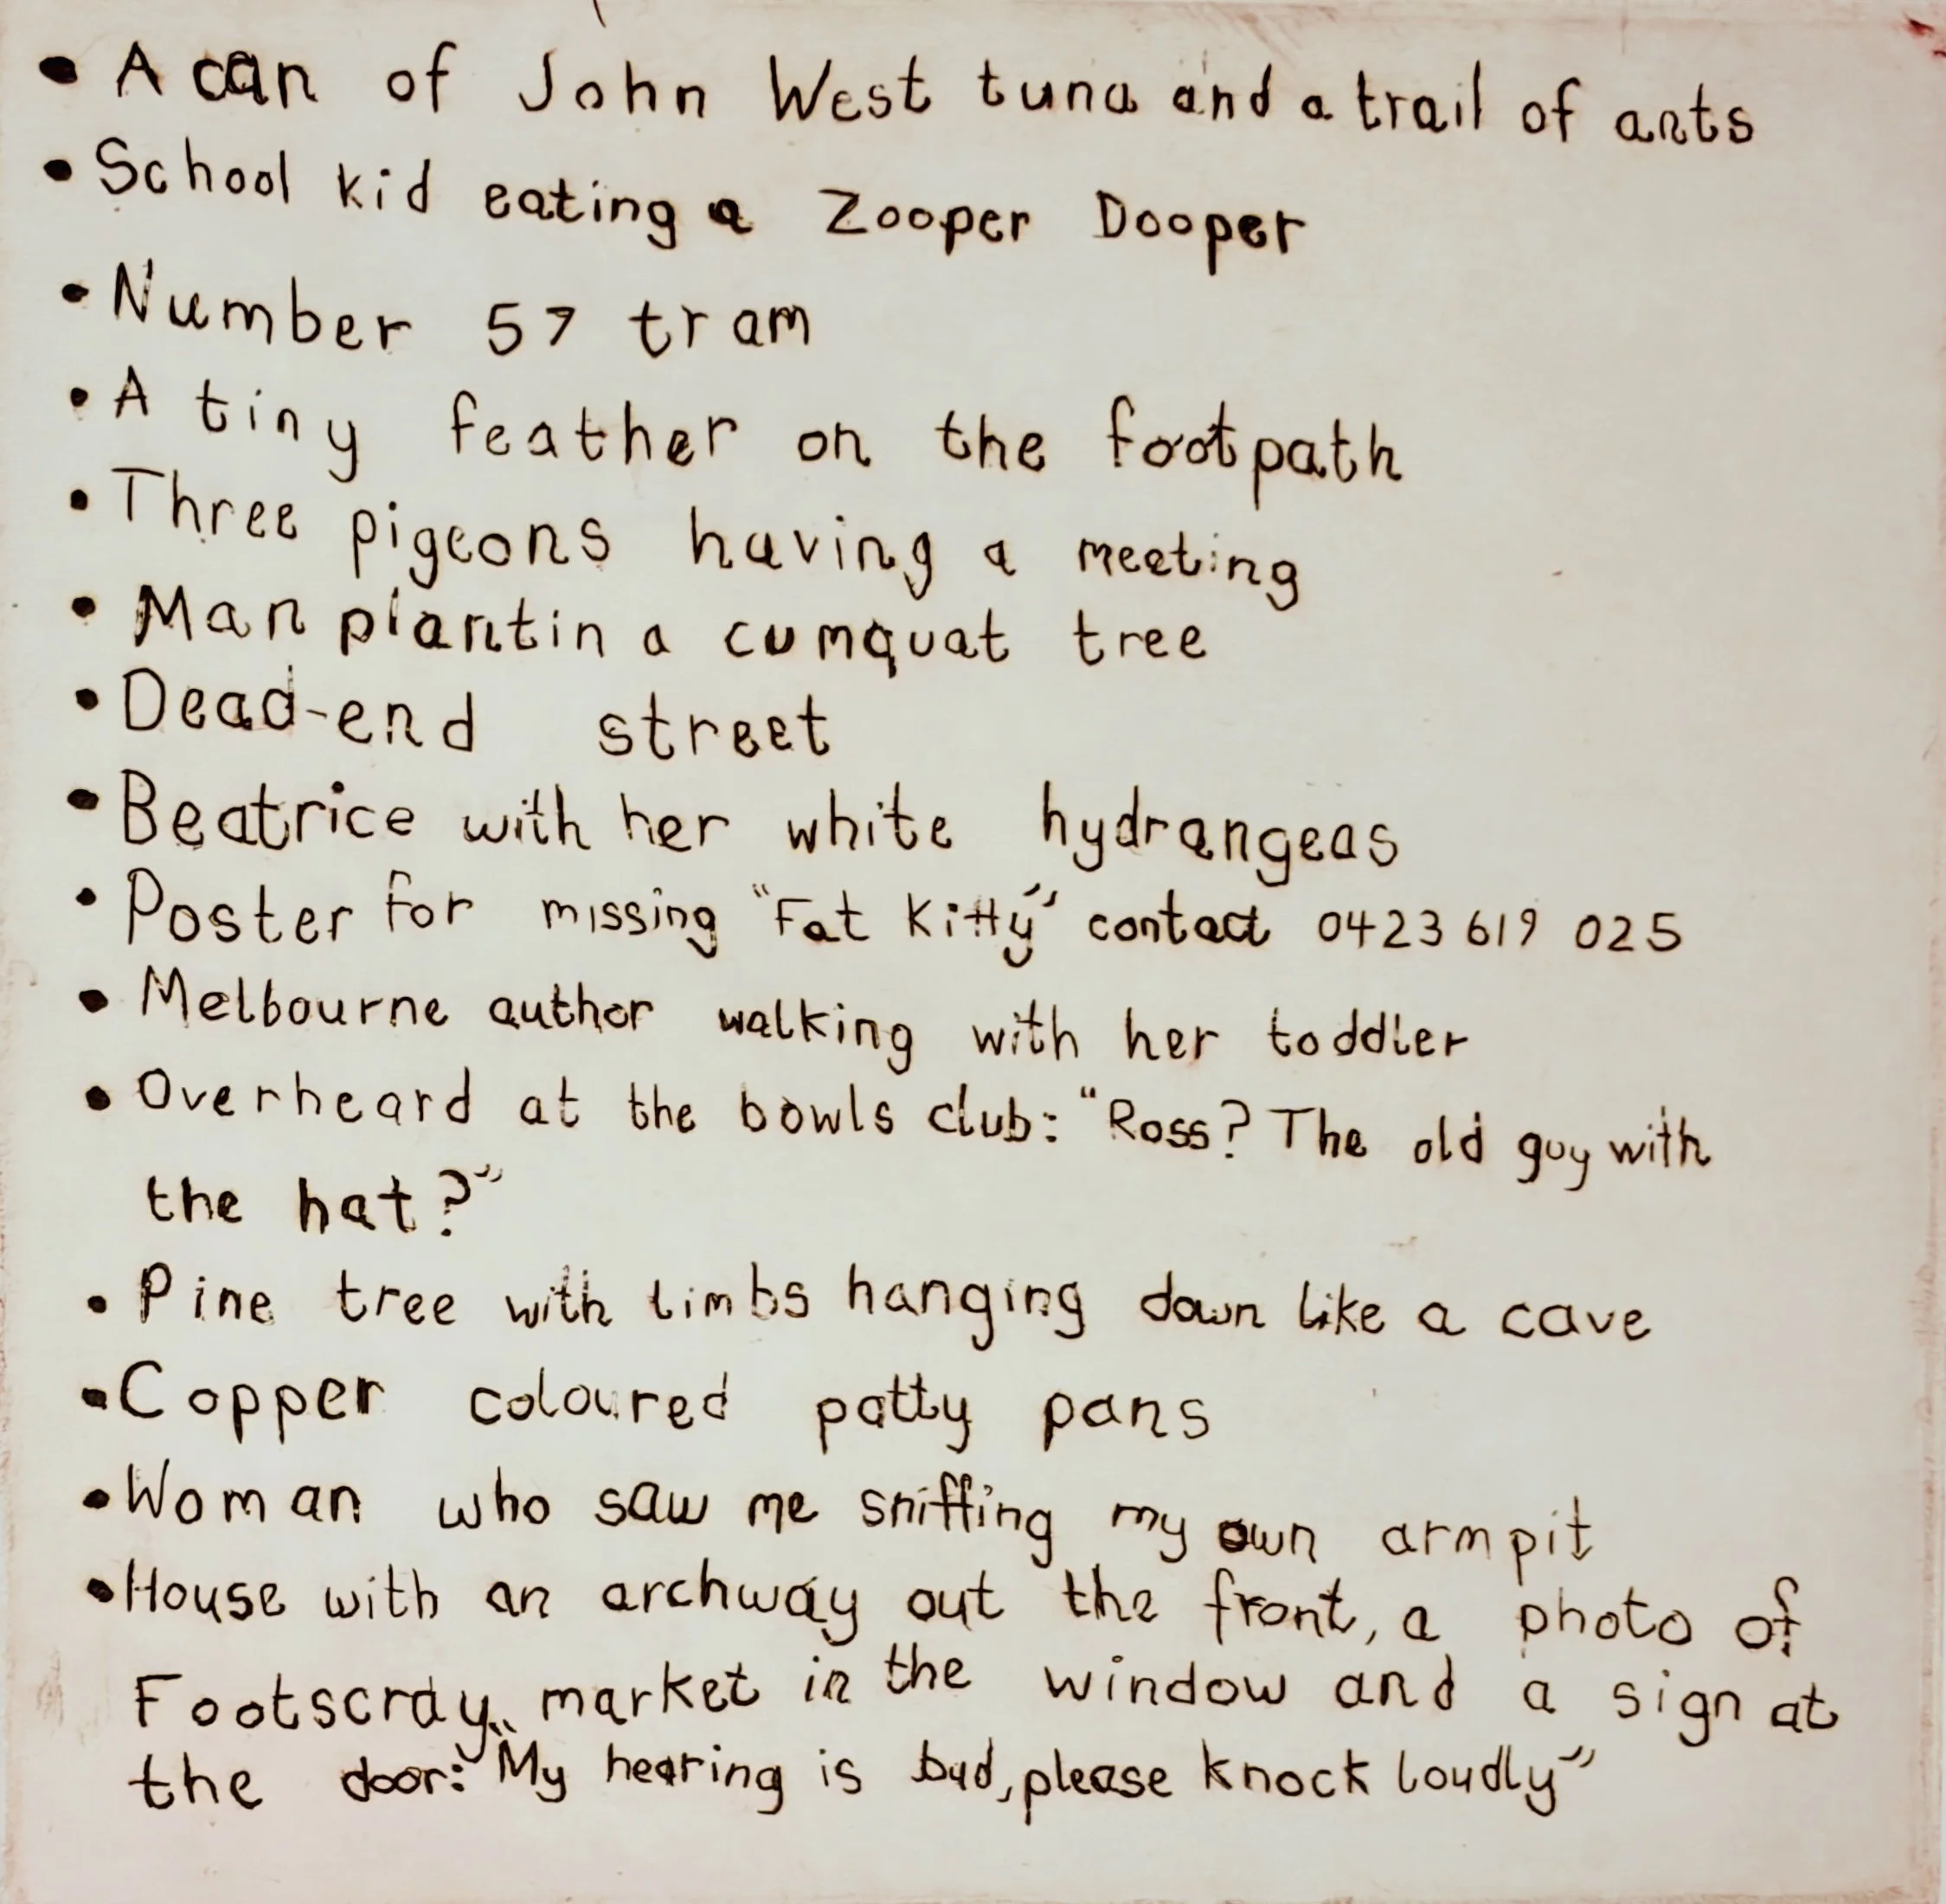 • A can of John West tuna and a trail of ants
• School kid eating a Zooper Dooper
• Number 57 tram
• A tiny feather on the footpath
• Three pigeons having a meeting
• Man plantin a cumquat tree
• Dead-end street
• Beatrice with her white hydrangeas
• Poster for missing "Fat Kitty" contact 0423 619 025
• Melbourne author walking with her toddler
• Overheard at the bowls club: "Ross? The old guy with
the hat?"
• Pine tree with limbs hanging down like a cave
• Copper coloured patty pans
• Woman who saw me sniffing my own armpit
• House with an archway out the front, a photo of
Footscray market in the window and a sign at
the door: "My hearing is bad, please knock loudly"